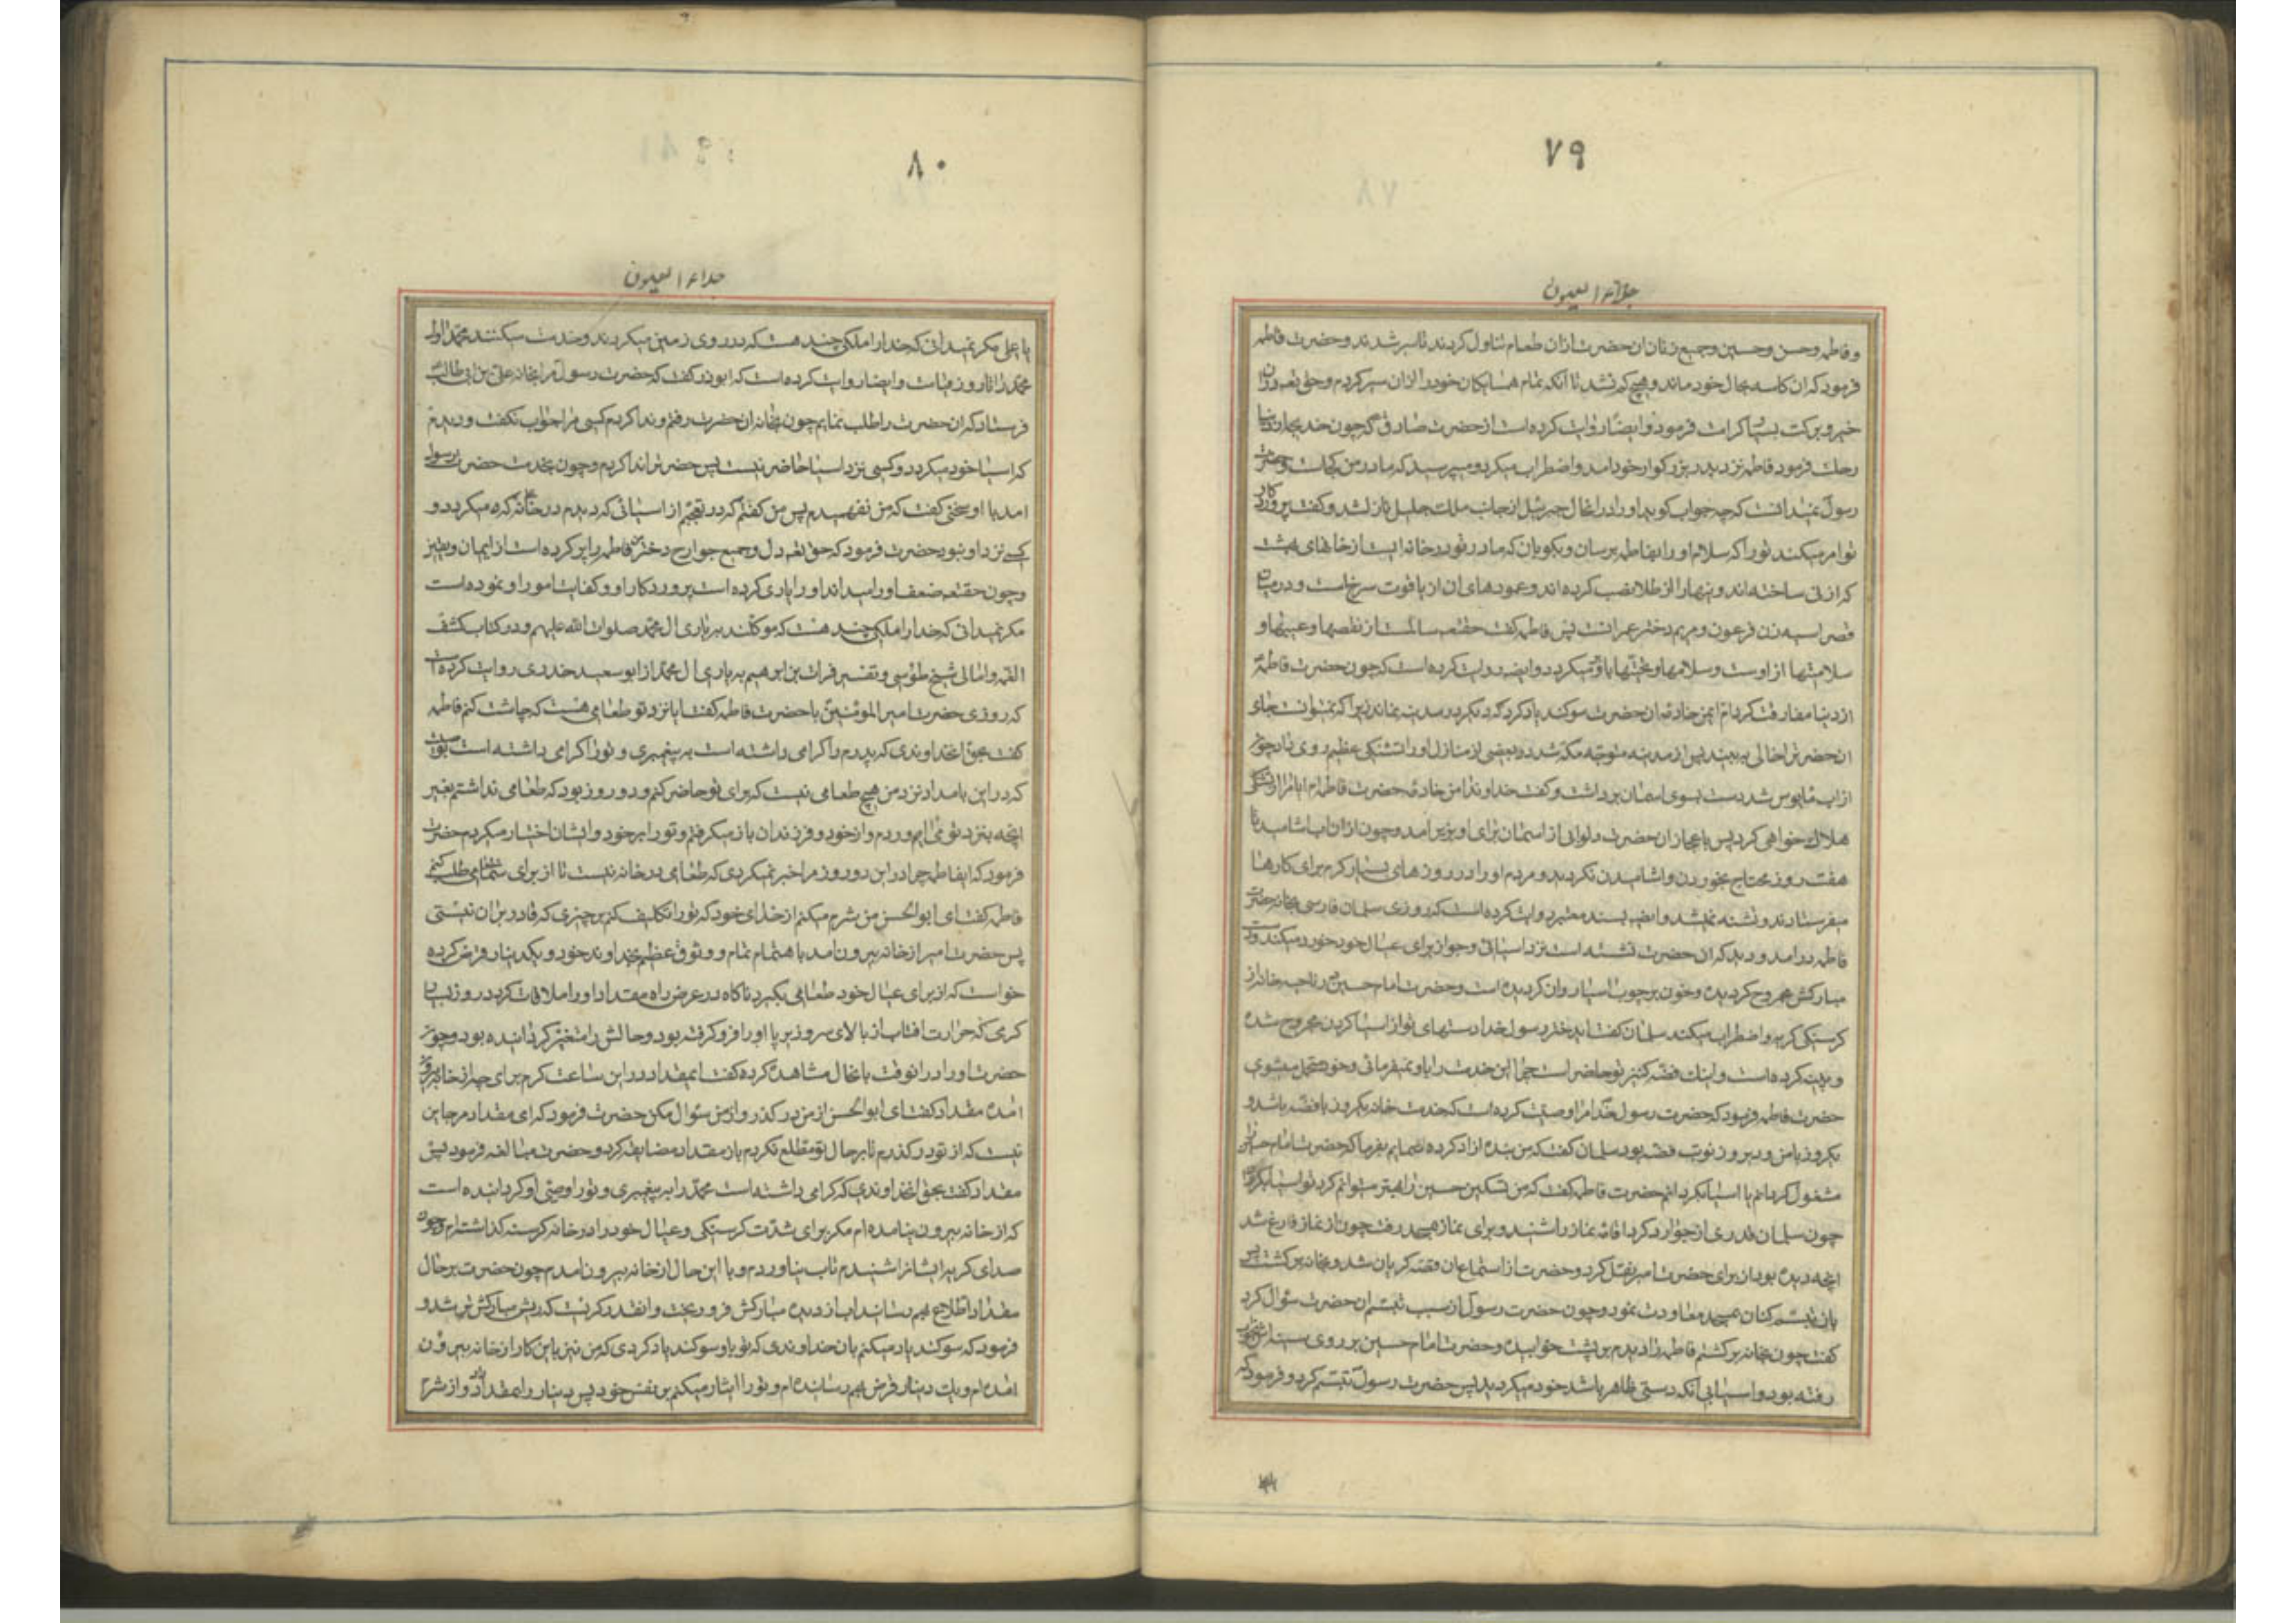 ۷۹
جلاء العیون
و فاطمه و حسن و حسین و جمیع زنان ان حضرت ازان طعام تناول کردند تا سیر شدند و حضرت فاطمه
فرمود که ان کاسه بحال خود ماند و هیچ کم نشد تا انکه تمام همسایکان خود را ازان سیر کردم و حق تعه دران
خیر و برکت بسیار کرامت فرمود و ایضا روایت کرده است از حضرت صادق که چون خدیجه از دنیا
رحلت فرمود فاطمه نزد پدر بزرکوار خود امد و اضطراب میکرد و میپرسید که مادر من کجاست و حضرت
رسول نمیدانست که چه جواب کوید او را درانحال جبرئیل از جانب ملک جلیل نازل شد و کفت پروردکار
تو امر میکند تو را که سلام او را بفاطمه برسان و بکو بان که مادر تو در خانه ایست از خانهای بهشت
که از نی ساخته اند و پیهارا از طلا نصب کرده اند و عمودهای ان از یاقوت سرخ است و در میان
قصر اسیه زن فرعون و مریم دختر عمرانست پس فاطمه کفت حقتعه سالمست از نقصها و عیبها و
سلامتیها از اوست و سلامها و تحیتها باو برمیکردد و ایضا روایت کرده است که چون حضرت فاطمه
از دنیا مفارقت کرد ام ایمن خادمه ان حضرت سوکند یاد کرد که دیکر در مدینه نماند زیرا که نمیتوانست جای
ان حضرت را خالی به بیند پس از مدینه متوجه مکه شد در بعضی از منازل او را تشنکی عظیم روی داد چون
از اب مایوس شد دست بسوی اسمان برداشت و کفت خداوندا من خادمه حضرت فاطمه ام ایا مرا از تشنکی
هلاک خواهی کرد پس باعجاز ان حضرت دلوابی از اسمان برای او بزیر امد و چون ازان اب اشامید تا
هفت روز محتاج بخوردن و اشامیدن نکردید و مردم او را در روزهای بسیار کرم برای کارها
میفرستادند و تشنه نمیشد و ایضا بسند معتبر روایت کرده است که روزی سلمان فارسی بخانه حضرت
فاطمه درامد و دید که ان حضرت نشسته است نزد اسیائی و جو از برای عیال خود خورد میکند و دست
مبارکش مجروح کردیده و خون بر چوب اسیا روان کردیده است و حضرت امام حسین در ناحیه خانه از
کرسنکی کریه و اضطراب میکند سلمان کفت ایدختر رسول خدا دستهای تو از اسیا کردن مجروح شده
و پینه کرده است و اینک فضه کنیز تو حاضر است چرا این خدمت را باو نمیفرمائی و خود متحمل میشوی
حضرت فاطمه فرمود که حضرت رسول خدا مرا وصیت کرده است که خدمت خانه یکروز با فضه باشد و
یکروز با من و دیروز نوبت فضه بود سلمان کفت که من بنده ازاد کرده شمایم بفرما که حضرت امام حسین را
مشغول کردانم یا اسیا بکردانم حضرت فاطمه کفت که من تسکین حسین را بهتر میتوانم کرد تو اسیا بکردان
چون سلمان قدری از جو ارد کرد اقامه نماز را شنید و برای نماز بمسجد رفت چون از نماز فارغ شد
انچه دیده بود از برای حضرت امیر نقل کرد و حضرت از استماع ان قصه کریان شد و بخانه برکشت پس
بان تبسم کنان بمسجد معاودت نمود و چون حضرت رسول از سبب تبسم ان حضرت سئوال کرد
کفت چون بخانه برکشتم فاطمه را دیدم بر پشت خوابیده و حضرت امام حسین بر روی سینه اش بخواب
رفته بود و اسیا بی انکه دستی ظاهر باشد خود میکردید پس حضرت رسول تبسم کرد و فرمود که
۸۰
جلاء العیون
یا علی مکر نمیدانی که خدا را ملکی چند هست که در روی زمین میکردند و خدمت میکنند محمد و ال
محمد را تا روز قیامت و ایضا روایت کرده است که ابوذر کفت که حضرت رسول مرا بخانه علی بن ابی طالب
فرستاد که ان حضرت را طلب نمایم چون بخانه ان حضرت رفتم و ندا کردم کسی مرا جواب نکفت و دیدم
که اسیا خود میکردد و کسی نزد اسیا حاضر نیست پس حضرت را ندا کردم و چون بخدمت حضرت رسول
امد با او سخنی کفت که من نفهمیدم پس من کفتم که در تعجبم از اسیائی که دیدم در خانه که میکردد و
کسے نزد او نبود حضرت فرمود که حق تعه دل و جمیع جوارح دخترم فاطمه را پر کرده است از ایمان و یقین
و چون حقتعه ضعف او را میداند او را یاری کرده است پروردکار او و کفایت امور او نموده است
مکر نمیدانی که خدا را ملکی چند هست که موکلند به یاری ال محمد صلوات الله علیهم و در کتاب کشف
الغمه و امالی شیخ طوسی و تفسیر فرات بن ابرهیم به یاری ال محمد از ابوسعید خدری روایت کرده است
که روزی حضرت امیرالمومنین با حضرت فاطمه کفت ایا نزد تو طعامی هست که چاشت کنم فاطمه
کفت بحق انخداوندی که پدرم را کرامی داشته است به پیغمبری و تو را کرامی داشته است بوصایت
که در این بامداد نزد من هیچ طعامی نیست که برای تو حاضر کنم و دو روز بود که طعامی نداشتم بغیر
انچه بنزد تو می اوردم و از خود و فرزندان باز میکرفتم و تو را بر خود و ایشان اختیار میکردم حضرت
فرمود که ایفاطمه چرا در این دو روز مرا خبر نمیکردی که طعامی در خانه نیست تا از برای شما طعامی طلب کنم
فاطمه کفت ای ابوالحسن من شرم میکنم از خدای خود که تو را تکلیف کنم بر چیزی که قادر بران نیستی
پس حضرت امیر از خانه بیرون امد با اهتمام تمام و وثوق عظیم بخداوند خود و یکدینار قرض کرده
خواست که از برای عیال خود طعامی بکیرد ناکاه در عرض راه مقداد او را ملاقات کرد در روز بسیار
کرمی که حرارت افتاب از بالای سر و زیر پا او را فرو کرفته بود و حالش را متغیر کردانیده بود و چون
حضرت او را درانوقت بانحال مشاهده کرده کفت ایمقداد در این ساعت کرم برای چه از خانه بیرون
امده مقداد کفت ای ابوالحسن از من در کذر و از من سئوال مکن حضرت فرمود که ای مقداد مرا جایز
نیست که از تو در کذرم تا بر حال تو مطلع نکردم باز مقداد مضایقه کرد و حضرت مبالغه فرمود پس
مقداد کفت بحق انخداوندی که کرامی داشته است محمد را به پیغمبری و تو را وصی او کردانیده است
که از خانه بیرون نیامده ام مکر برای شدت کرسنکی و عیال خود را در خانه کرسنه کذاشته ام و چون
صدای کریه ایشانرا شنیدم تاب نیاوردم و با این حال از خانه بیرون امدم چون حضرت بر حال
مقداد اطلاع بهم رسانید اب از دیده مبارکش فرو ریخت و انقدر کریست که ریش مبارکش تر شد و
فرمود که سوکند یاد میکنم بان خداوندی که تو باو سوکند یاد کردی که من نیز باین کار از خانه بیرون
امده ام و یک دینار قرض بهم رسانیده ام و تو را ایثار میکنم بر نفس خود پس دینار را بمقداد داد و از شرم